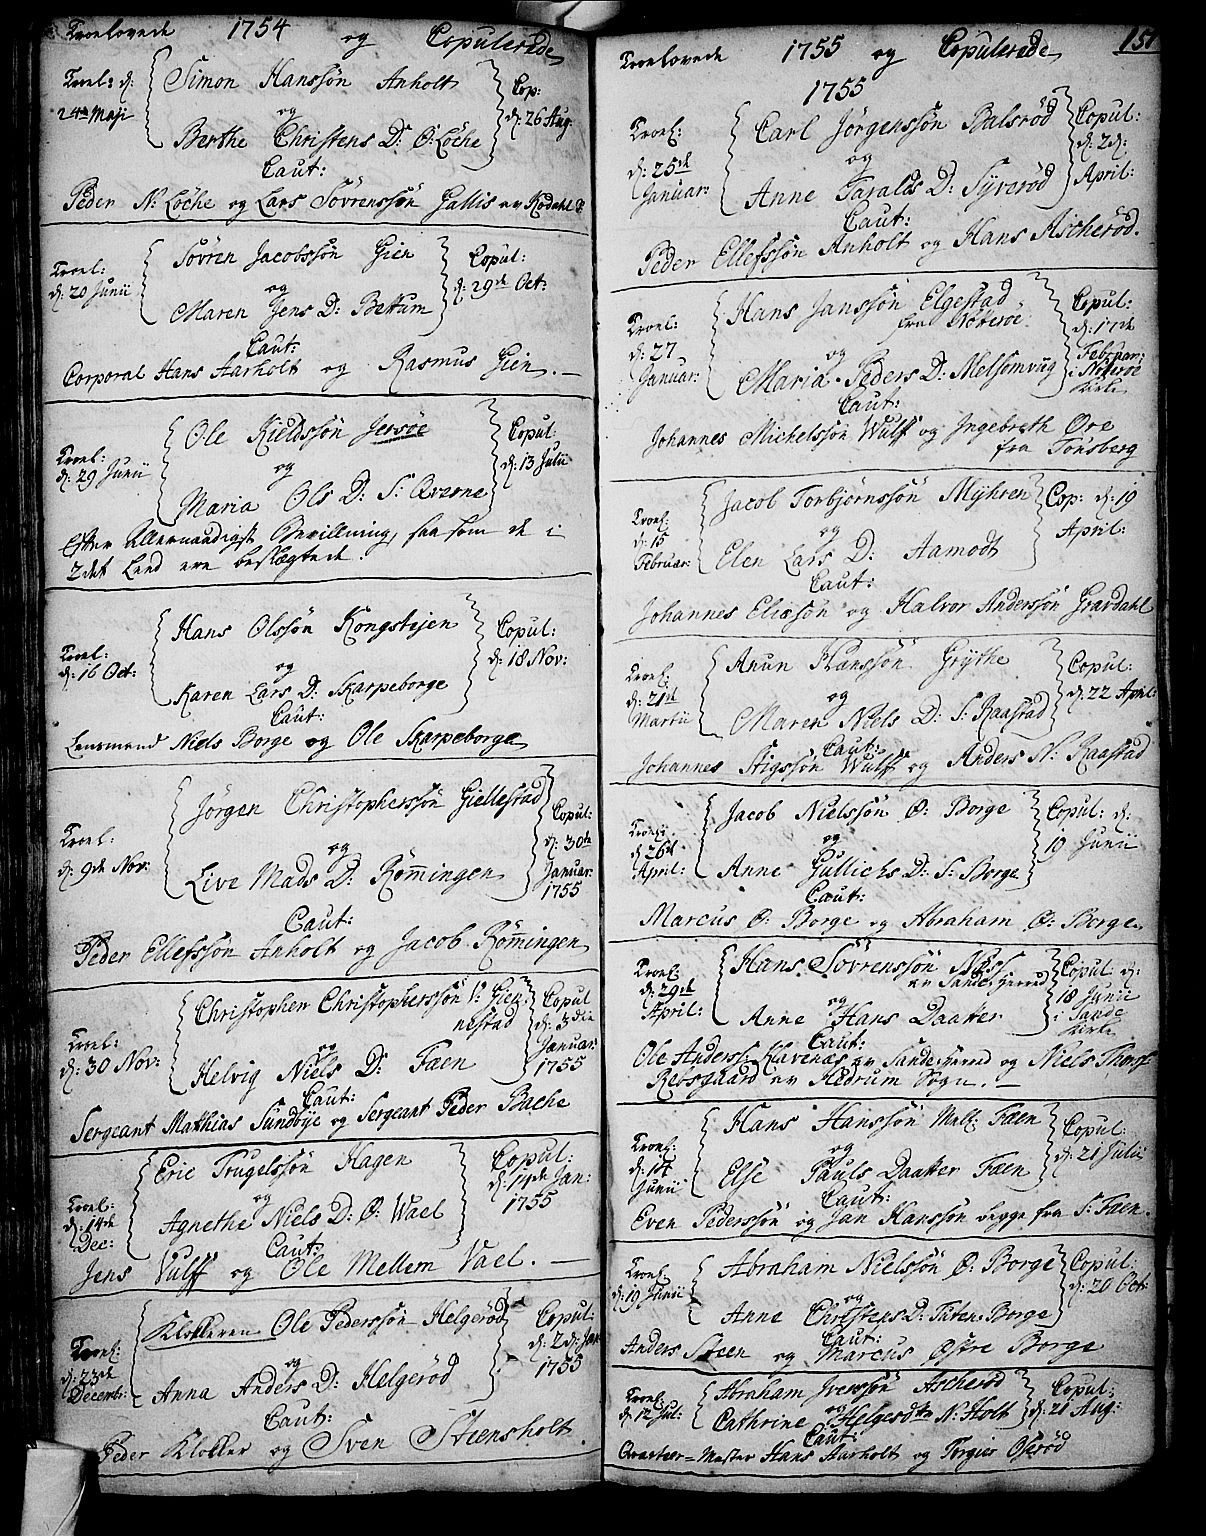 Troelovede 1754 og Copulerede
Troel: d: 24de Maji
Simon Hanssön Anholt
og
Berthe Christens D: Ö: Löche
Cop: d: 26 Aug:
Caut:
Peder N: Löche og Lars Sövrenssön Gallis av Kodahl S:
Troel: d: 20 Junii
Sövren Jacobssön Gien
og
Maren Jens D: Bettum
Copul: d: 29de Oct:
Caut:
Corporal Hans Aarholt og Rasmus Gien. —
Troel: d: 29 Junii
Ole Kieldssön Jersöe
og
Maria Ols D: S: Qverne
Copul: d: 13 Julii
Efter Allernaadigst Bevillning, saasom de i
2det Leed ere beslægtede.
Troel: d: 16 Oct:
Hans Olssön Kongstejen
og
Karen Lars D: Skarpeborge
Copul: d: 18 Nov:
Caut:
Lensmand Niels Borge og Ole Skarpeborge
Troel: d: 9de Nov:
Jörgen Christopherssön Giellestad
og
Live Mads D: Römingen
Copul: d: 30te Januar: 1755
Caut:
Peder Ellefssön Anholt og Jacob Römingen
Troel: d: 30 Nov:
Christopher Christopherssön V: Gien
nestad
og
Helvig Niels D: Faen
Copul d: 3die Januar: 1755
Caut:
Sergeant Matthias Sundbye og Sergeant Peder Bache
Troel: d: 14de Dec:
Eric Trugelssön Hagen
og
Agnethe Niels D: Ö: Wael
Copul: d: 14de Jan: 1755
Caut:
Jens Wulff og Ole Mellem Vael. —
Troel: d: 23de Decemb:
Klokkeren Ole Pederssön Helgeröd
og
Anna Anders D: Helgeröd
Copul: d: 2d: Jan: 1755
Caut:
Peder Klokker og Sven Steensholt
Troelovede 1755 og Copulerede 151
1755
Troel: d: 25de Januar:
Carl Jörgenssön Balsröd
og
Anne Taralds D: Syveröd
Copul: d: 2d: April:
Caut:
Peder Ellefssön Anholt og Hans Ascheröd.
Troel: d: 27 Januar:
Hans Janssön Elgestad
fra Nötteröe
og
Maria Peders D: Melsomvug
Copul: d: 17de Februar: i Nöteröe Kirke
Caut:
Johannes Michelssön Wulff og Ingebreth Öre
fra Tönsberg
Troel: d: 15 Februar:
Jacob Torbjörnssön Myhren
og
Elen Lars D: Aamodt
Cop: d: 19 April:
Caut:
Johannes Eliæsön og Halvor Anderssön Gravdahl
Troel: d: 21de Martii
Anun Hanssön Grythe
og
Maren Niels D: S: Raastad
Copul: d: 22 April:
Caut:
Johannes Stigssön Wulff og Anders N: Raastad
Troel: d 26d April:
Jacob Nielssön Ö: Borge
og
Anne Gullichs D: S: Borge
Copul: d: 19 Junii
Caut:
Marcus Ö: Borge og Abraham Ö: Borge
Troel: d: 29de April:
Hans Sövrenssön Ness
av Sandeherred
og
Anne Hans Daatter
Copul d: 18 Junii i Sande Kirke
Caut:
Ole Anderss: Klavenæs av Sandeherred og Niels Thorss:
Rebsgaard av Hedrum Sogn. —
Troel: d: 14 Junii
Hans Hanssön Mell: Fæen
og
Else Pauls Daatter Fæen
Copul: d: 21 Julii
Caut:
Even Pederssön og Jan Hanssön begge fra S: Fæen.
Troel: d: 19 Junii
Abraham Nielssön Ö: Borge
og
Anne Christens D: Tuten Borge
Copul: d: 20 Oct:
Caut:
Anders Steen og Marcus Östre Borge
Troel: d: 12 Jul:
Abraham Iverssön Ascheröd
og
Cathrine Helgesdtr N: Holt
Copul: d: 21 Aug:
Caut:
Qvarteer-Mester Hans Aarholt og Torgier Oseröd